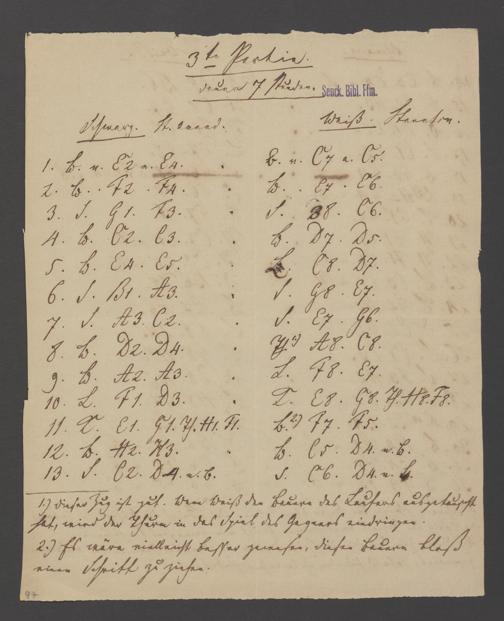 3te Partie.
dauer 7 Stunden. Senck. Bibl. Ffm.
Schwarz. St. Amand. Weiß. Staunton.
1. B. v. E2 n. E4. B. v. C7 n. C5.
2. B. F2. F4. B. E7. E6.
3. S. G1. F3. S. B8. C6.
4. B. C2. C3. B. D7. D5.
5. B. E4. E5. L. C8. D7.
6. S. B1. A3. S. G8. E7.
7. S. A3. C2. S. E7. G6.
8. B. D2. D4. Th1) A8. C8.
9. B. A2. A3. L. F8. E7.
10. L. F1. D3. K. E8. G8. Th. H8. F8.
11. K. E1. G1. Th. H1. F1. B.2) F7. F5.
12. B. H2. H3. B. C5. D4. n. B.
13. S. C2. D4. n. B. S. C6. D4. n. B.
1.) dieser Zug ist gut. Wenn Weiß den Bauern des Läufers ausgetauscht
hat, wird der Thurm in das Spiel des Gegners eindringen.
2.) Es wäre vielleicht besser gewesen, diesen Bauern bloß
einen Schritt zu ziehen.
97